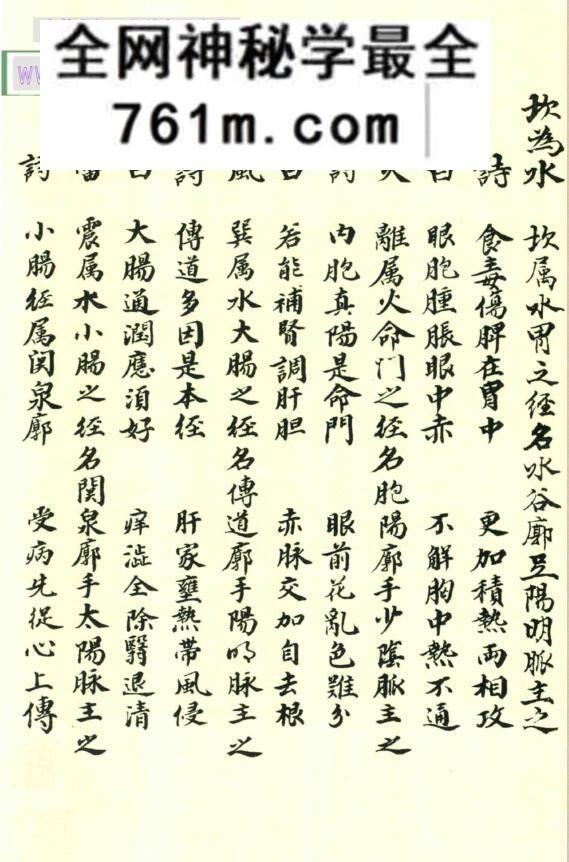 全网神秘学最全
761m.com
坎為水 坎属水胃之经名水谷廓足陽明脈主之
詩 食毒傷脾在胃中 更加積熱両相攻
曰 眼胞腫脹眼中赤 不解胸中熱不通
火 離属火命门之经名胞陽廓手少陰脈主之
詩 内胞真陽是命門 眼前花亂色難分
曰 若能補腎調肝胆 赤脉交加自去根
風 巽属水大腸之经名傳道廓手陽明脉主之
詩 傳道多因是本经 肝家壅熱帯風侵
曰 大腸通潤應須好 痒澁全除翳退清
震属木小腸之经名関泉廓手太陽脉主之
詩 小腸经属関泉廓 受病先從心上傳